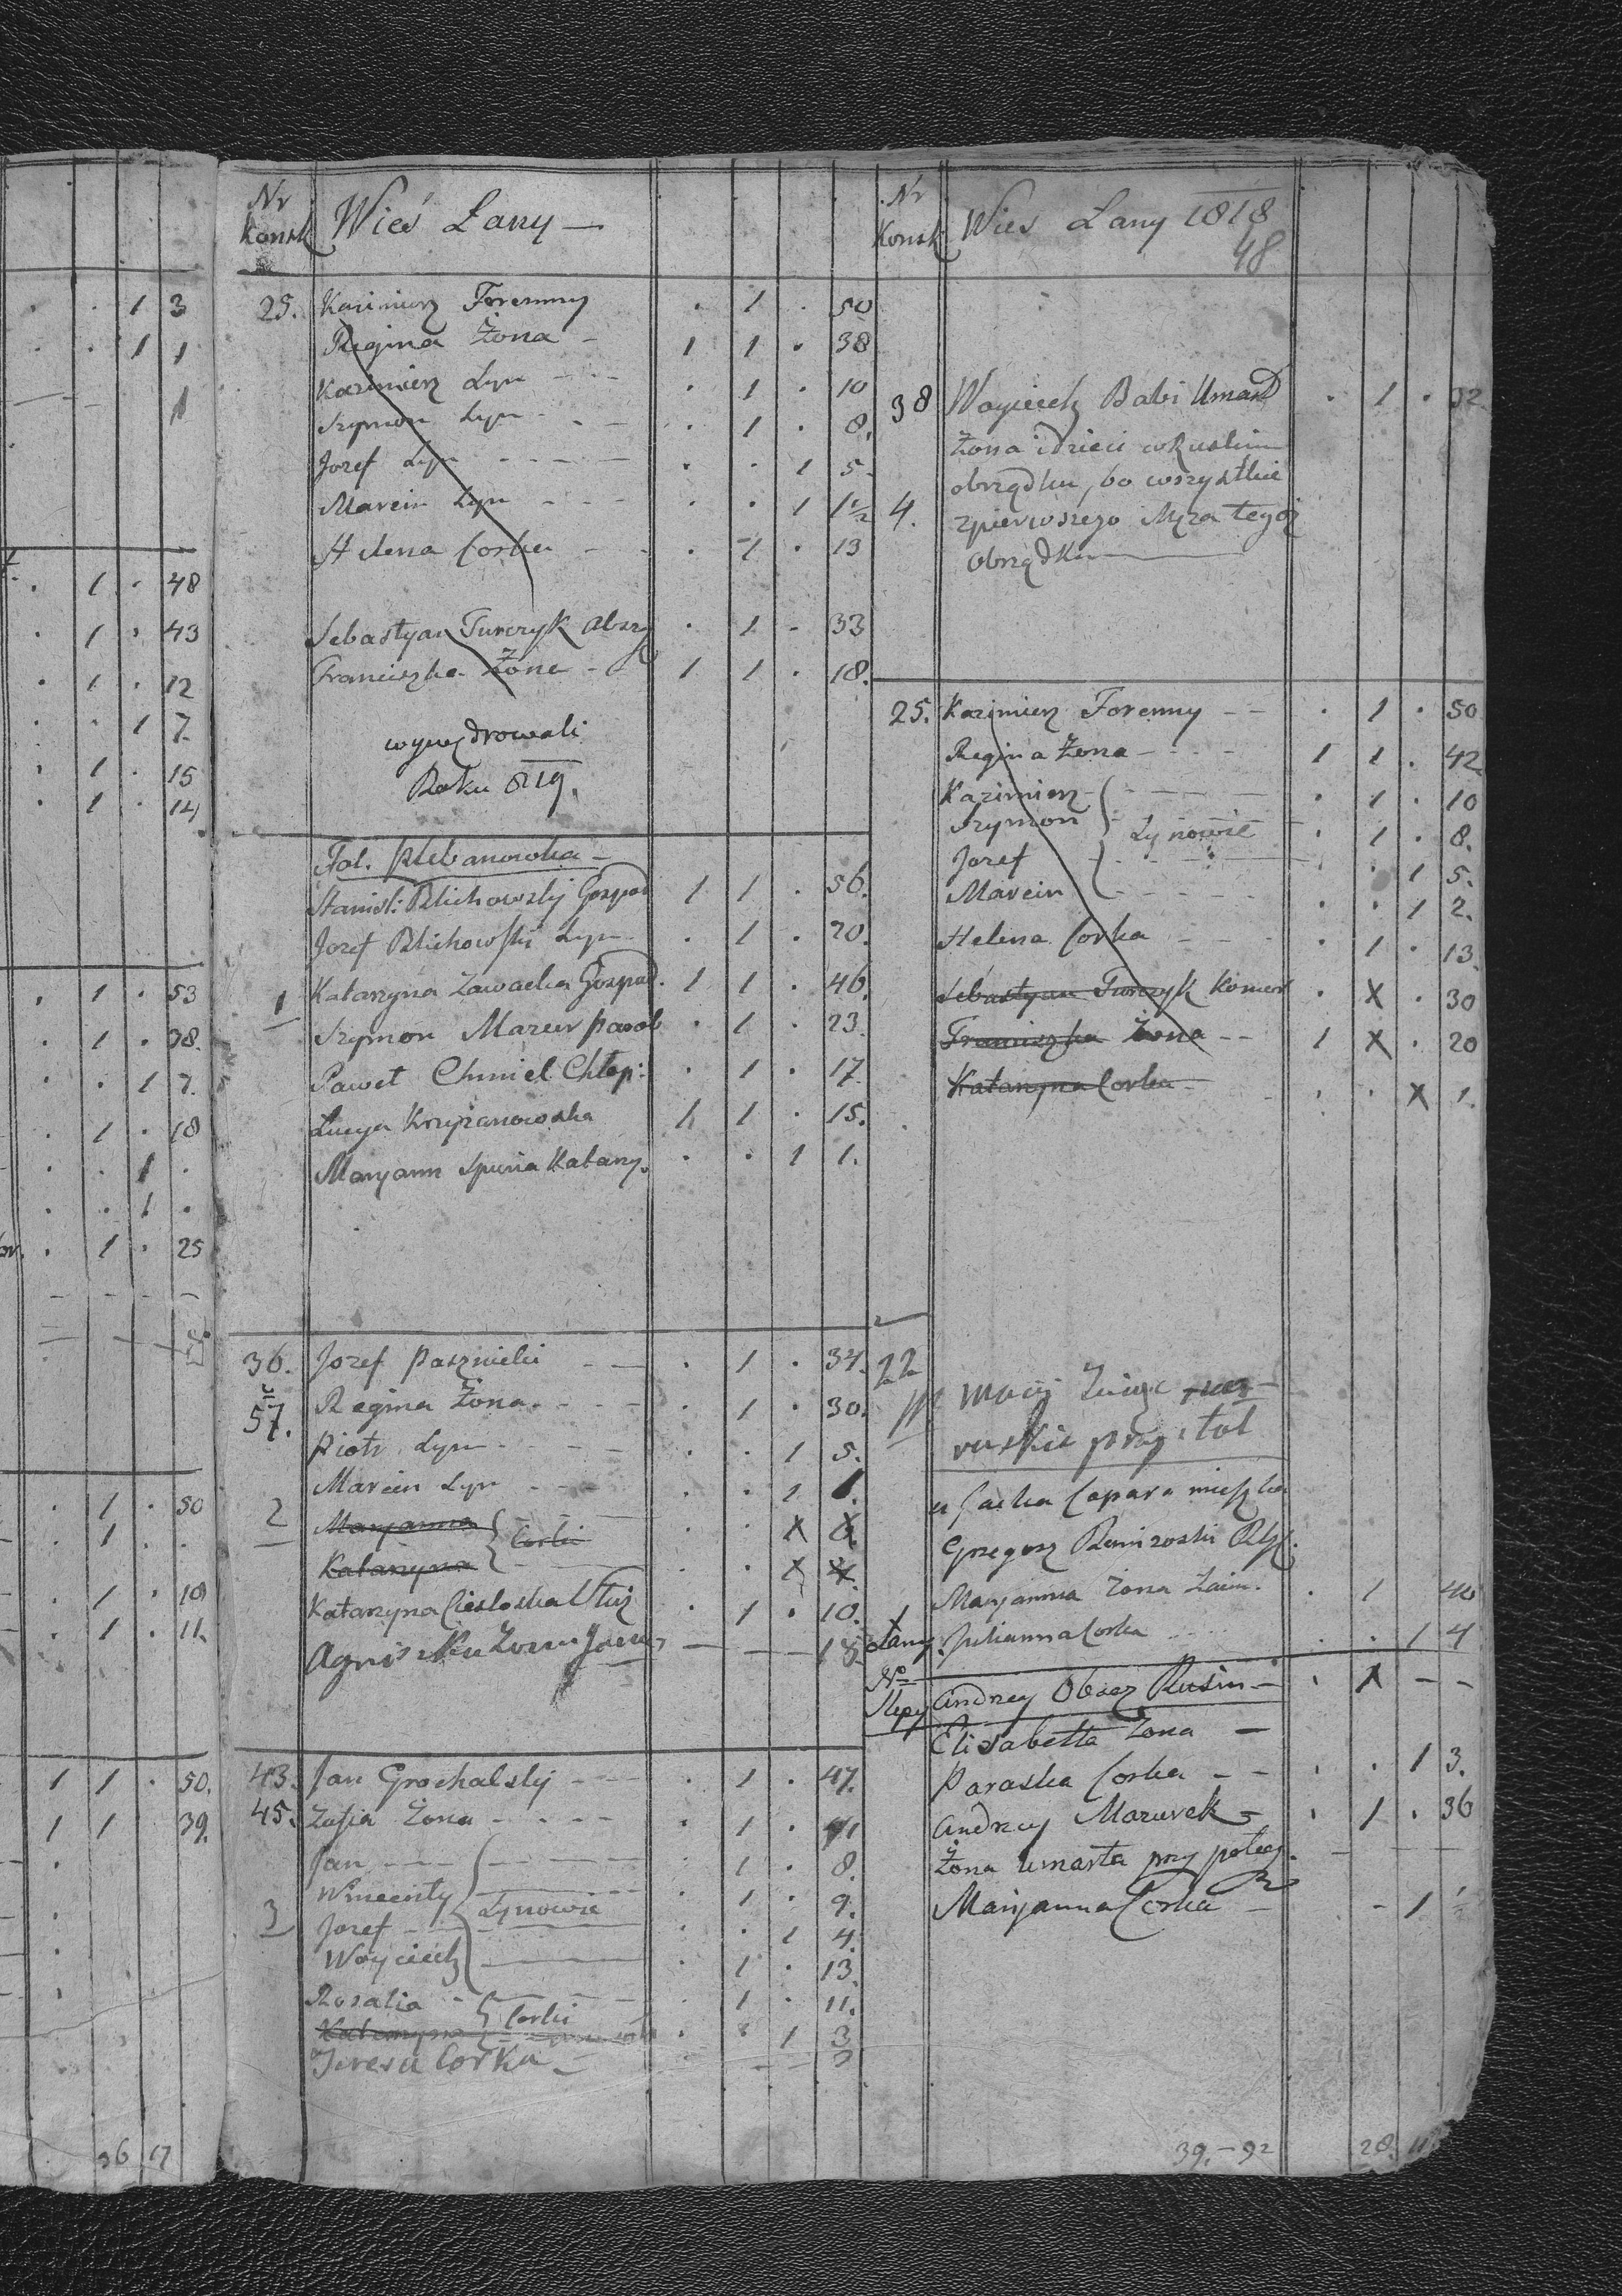 Nr Konsk Wieś Łany —
25. Kazimierz Foremny . 1 . 50
Regina Żona - 1 1 . 38
Kazimierz Syn . 1 . 10
Szymon Syn . 1 . 8.
Jozef Syn . . 1 5
Marcin Syn . . 1 1½
Helena Corka . 1 . 13
Sebastyan Turczyk Absz . 1 . 33
Franciszka Żona 1 1 . 18.
wywędrowali
Roku 819.
Fol. Plebanowka -
Stanisl: Blichowsky Gospod 1 1 . 56.
Jozef Blichowski Syn . 1 . 20.
1 Katarzyna Zawacka Gospod. 1 1 . 46.
Szymon Mazur parob . 1 . 23.
Paweł Chmiel Chłop: . 1 . 17.
Łucya Krzyzanowska 1 1 . 15.
Maryann spuria Katarzy. . . 1 1.
36. Jozef Paznicki . 1 . 34.
57. Regina Żona . 1 . 30.
Piotr Syn . . 1 5.
Marcin Syn . . 1
2 Maryanna Corki . . X
Katarzyna . . X
Katarzyna Ciesloska Służ . 1 . 10.
Agniszka Zona 18
43. Jan Grochalsky . 1 . 47.
45. Zofia Żona . 1 . 41
Jan . 1 . 8.
Wincenty Synowie . 1 . 9.
3 Jozef . . 1 4.
Woyciech . 1 . 13.
Rozalia Corki . 1 . 11.
Katarzyna . . 1 3
Teresa Corka
Nr Konsk Wies Łany 1818
48
38 Woyciech Babi Umarł . 1 . 32
Żona i dzieci w Ruskim
obrządku, bo wszystkie
4. zpierwszego Męza tegoż
obrządku
25. Kazimierz Foremny . 1 . 50
Regina Żona 1 1 . 42
Kazimierz . 1 . 10
Szymon Synowie . 1 . 8.
Jozef . . 1 5.
Marcin . . 1 2.
Helena Corka . 1 . 13.
Sebastyan Turczyk Komor . X . 30
Franciszka Żona 1 X . 20
Katarzyna Corka . . X 1.
22
Maciej
ruskie przy tol
u Jacka Capara mieszka
Grzegorz
Maryanna Żona . 1 40
Łany Julianna Corka . . 1 4
No Slepy Andrzey Obacz Rusin . X - -
Elisabetta Żona -
Paraska Corka . . 1 3.
Andrzey Mazurek . 1 . 36
Żona umarła przy połog
Maryanna Corka - 1
39. - 92 28. 11
1 3
1 1
1
1 . 48
1 . 43
1 . 12
1 7.
1 . 15
1 . 14
1 . 53
1 . 38.
1 7.
1 . 18
1 .
1 .
1 . 25
1 . 50
1 . .
1 . 10
1 . 11.
1 1 . 50.
1 1 39.
36 17